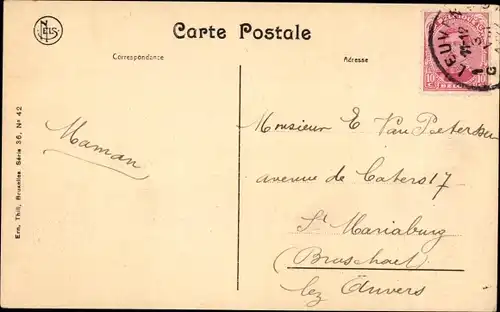 NELS
Carte Postale
Correspondance
Adresse
LEUV
10 10
Ern. Thill, Bruxelles. Série 36, No 42
Maman
Monsieur E Van Peterssen
avenue de Caters 17
St Mariaburg
(Braschaet)
lez Anvers